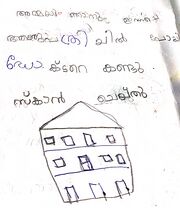 അമ്മയും ഞാനും ഇന്ന്
ആശുപത്രി യിൽ പോയി
ഡോ ക്ടറെ കണ്ടു.
സ്കാൻ ചെയ്തു